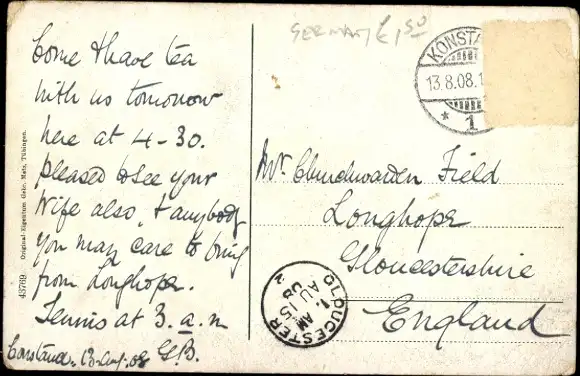 GERMANY £1.50
KONSTA
13.8.08.1
* 1
Come & have tea
with us tomorrow
here at 4-30.
pleased to see your
Wife also, & anybody
you may care to bring
from Longhope.
Tennis at 3. a.m
Constance. 13 Aug. 08 G.B.
Mr. Churchwarden Field
Longhope
Gloucestershire
England
GLOUCESTER
1. AM
AU 15
08
43769 Original-Eigentum Gebr. Metz, Tübingen.